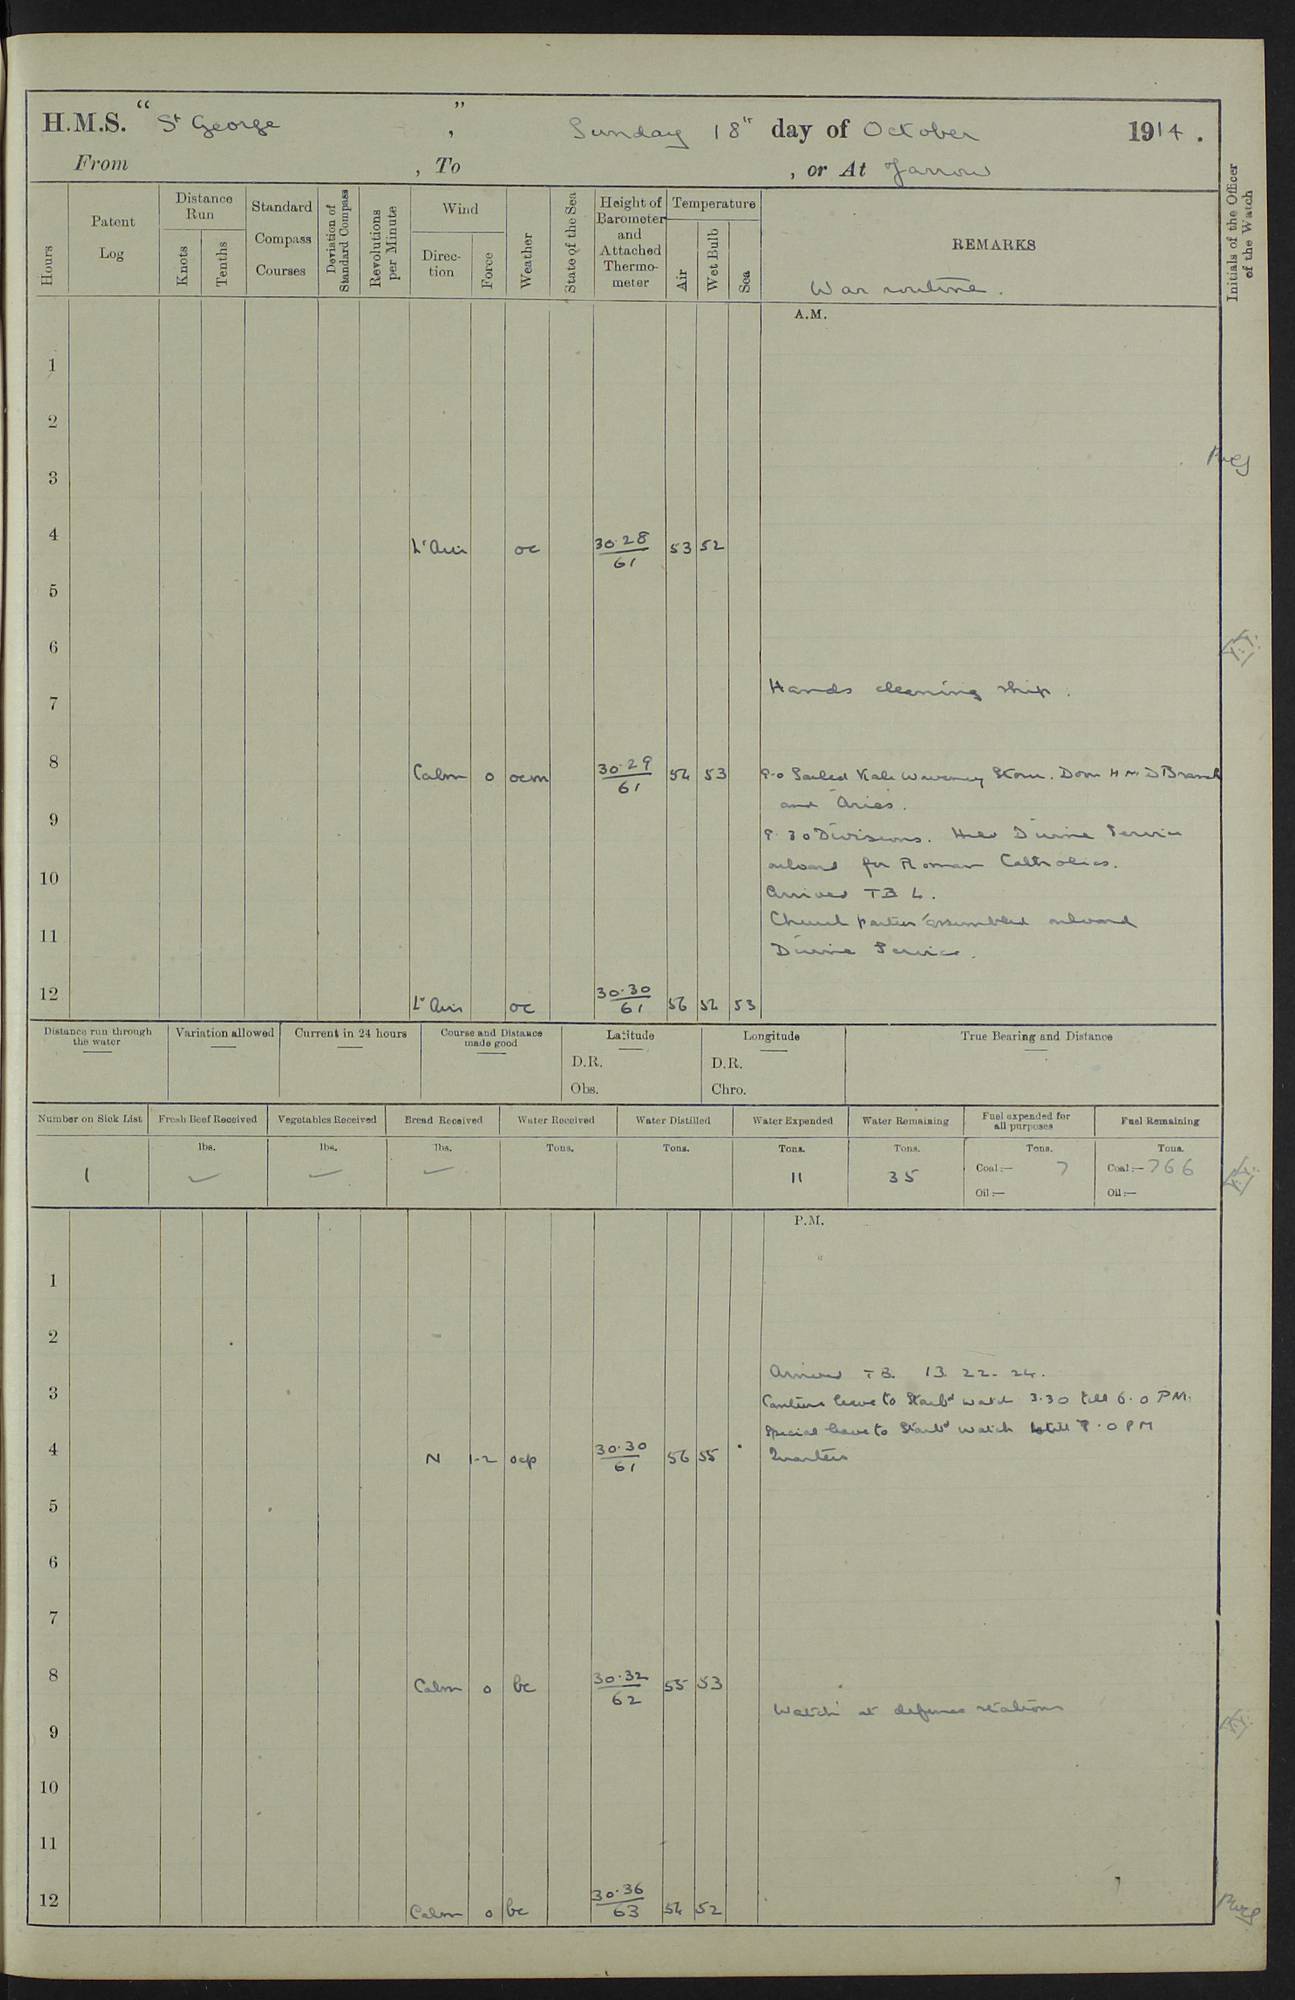 H.M.S. "St George", Sunday 18th day of October 1914.
From , To , or At Jarrow
Hours Patent Log Distance Run Knots Tenths Standard Compass Courses Deviation of Standard Compass Revolutions per Minute Wind Direction Force Weather State of the Sea Height of Barometer and Attached Thermometer Temperature Air Wet Bulb Sea REMARKS Initials of the Officer of the Watch
War routine.
A.M.
1
2
3
4 Lt Airs oc 30.28/61 53 52
5
6
Hands cleaning ship.
7
8 Calm 0 ocm 30.29/61 54 53 Sailed Kale Waveney Stour. Doon
and Aries.
9
9.30 Divisions. Held Divine Service
onboard for Roman Catholics.
10
Arrived TB 4.
Church parties assembled onboard
11
Divine Service.
12 Lt Airs oc 30.30/61 56 54 53
Distance run through the water Variation allowed Current in 24 hours Course and Distance made good Latitude Longitude True Bearing and Distance
D.R. D.R.
Obs. Chro.
Number on Sick List Fresh Beef Received Vegetables Received Bread Received Water Received Water Distilled Water Expended Water Remaining Fuel expended for all purposes Fuel Remaining
lbs. lbs. lbs. Tons. Tons. Tons. Tons. Tons. Tons.
1 ✓ ✓ ✓ 11 35 Coal:— 7 Coal:— 766
Oil:— Oil:—
P.M.
1
2
Arrived TB. 13 22. 24.
3 leave to Starbd watch 3.30 till 6.0 PM.
Special leave to Starbd watch till 9.0 PM
4 N 1-2 ocp 30.30/61 56 55 Quarters
5
6
7
8 Calm 0 bc 30.32/62 55 53
Watch at defence stations
9
10
11
12 Calm 0 bc 30.36/63 54 52